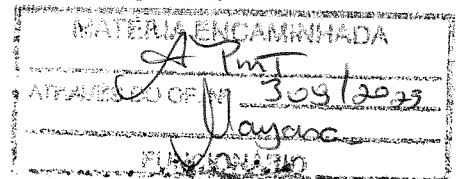 MATÉRIA ENCAMINHADA
A PMT
ATRAVÉS DO OF. Nº 309/2023
Nayara
FUNCIONÁRIO